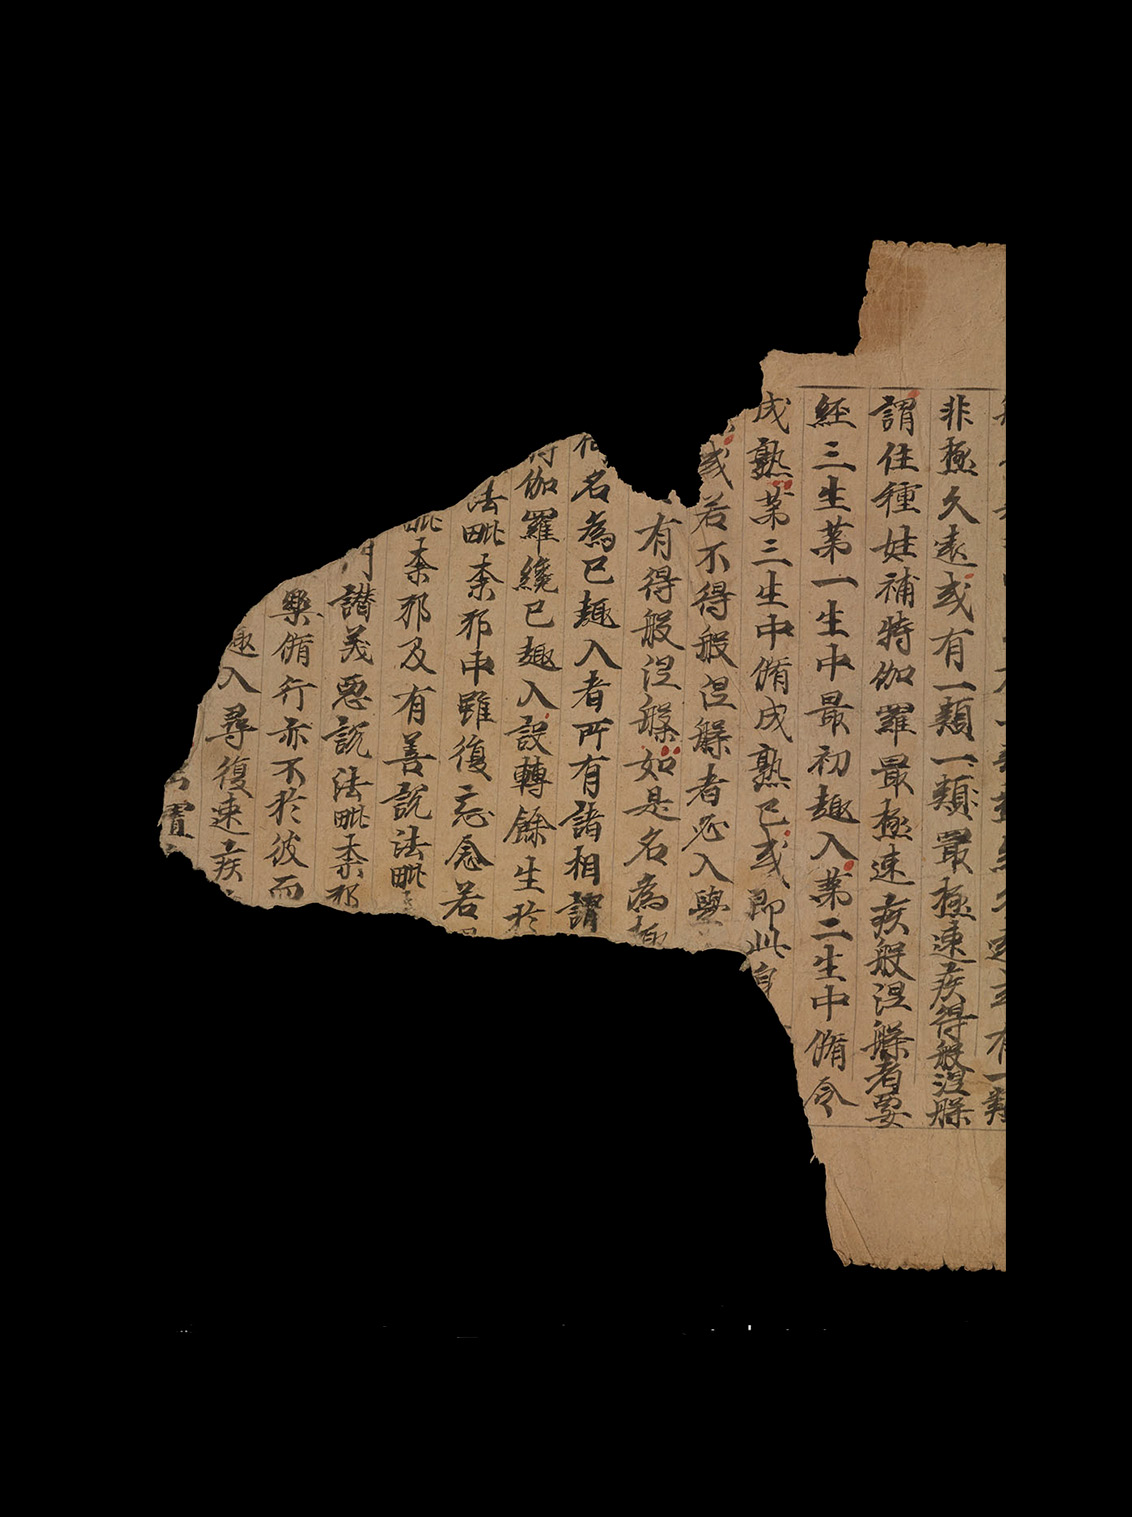 非極久遠或有一類一類最極速疾得般涅槃
謂住種姓補特伽羅最極速疾般涅槃者要
經三生苐一生中最初趣入苐二生中脩令
成熟苐三生中脩成熟已或即此身
或若不得般涅槃者必入學
有得般涅槃如是名為
何名為已趣入者所有諸相謂
伽羅纔已趣入設轉餘生於
法毗柰耶中雖復忘念若
毗柰耶及有善說法毗
門讃羙惡說法毗柰耶
樂脩行亦不於彼而
趣入尋復速疾
置